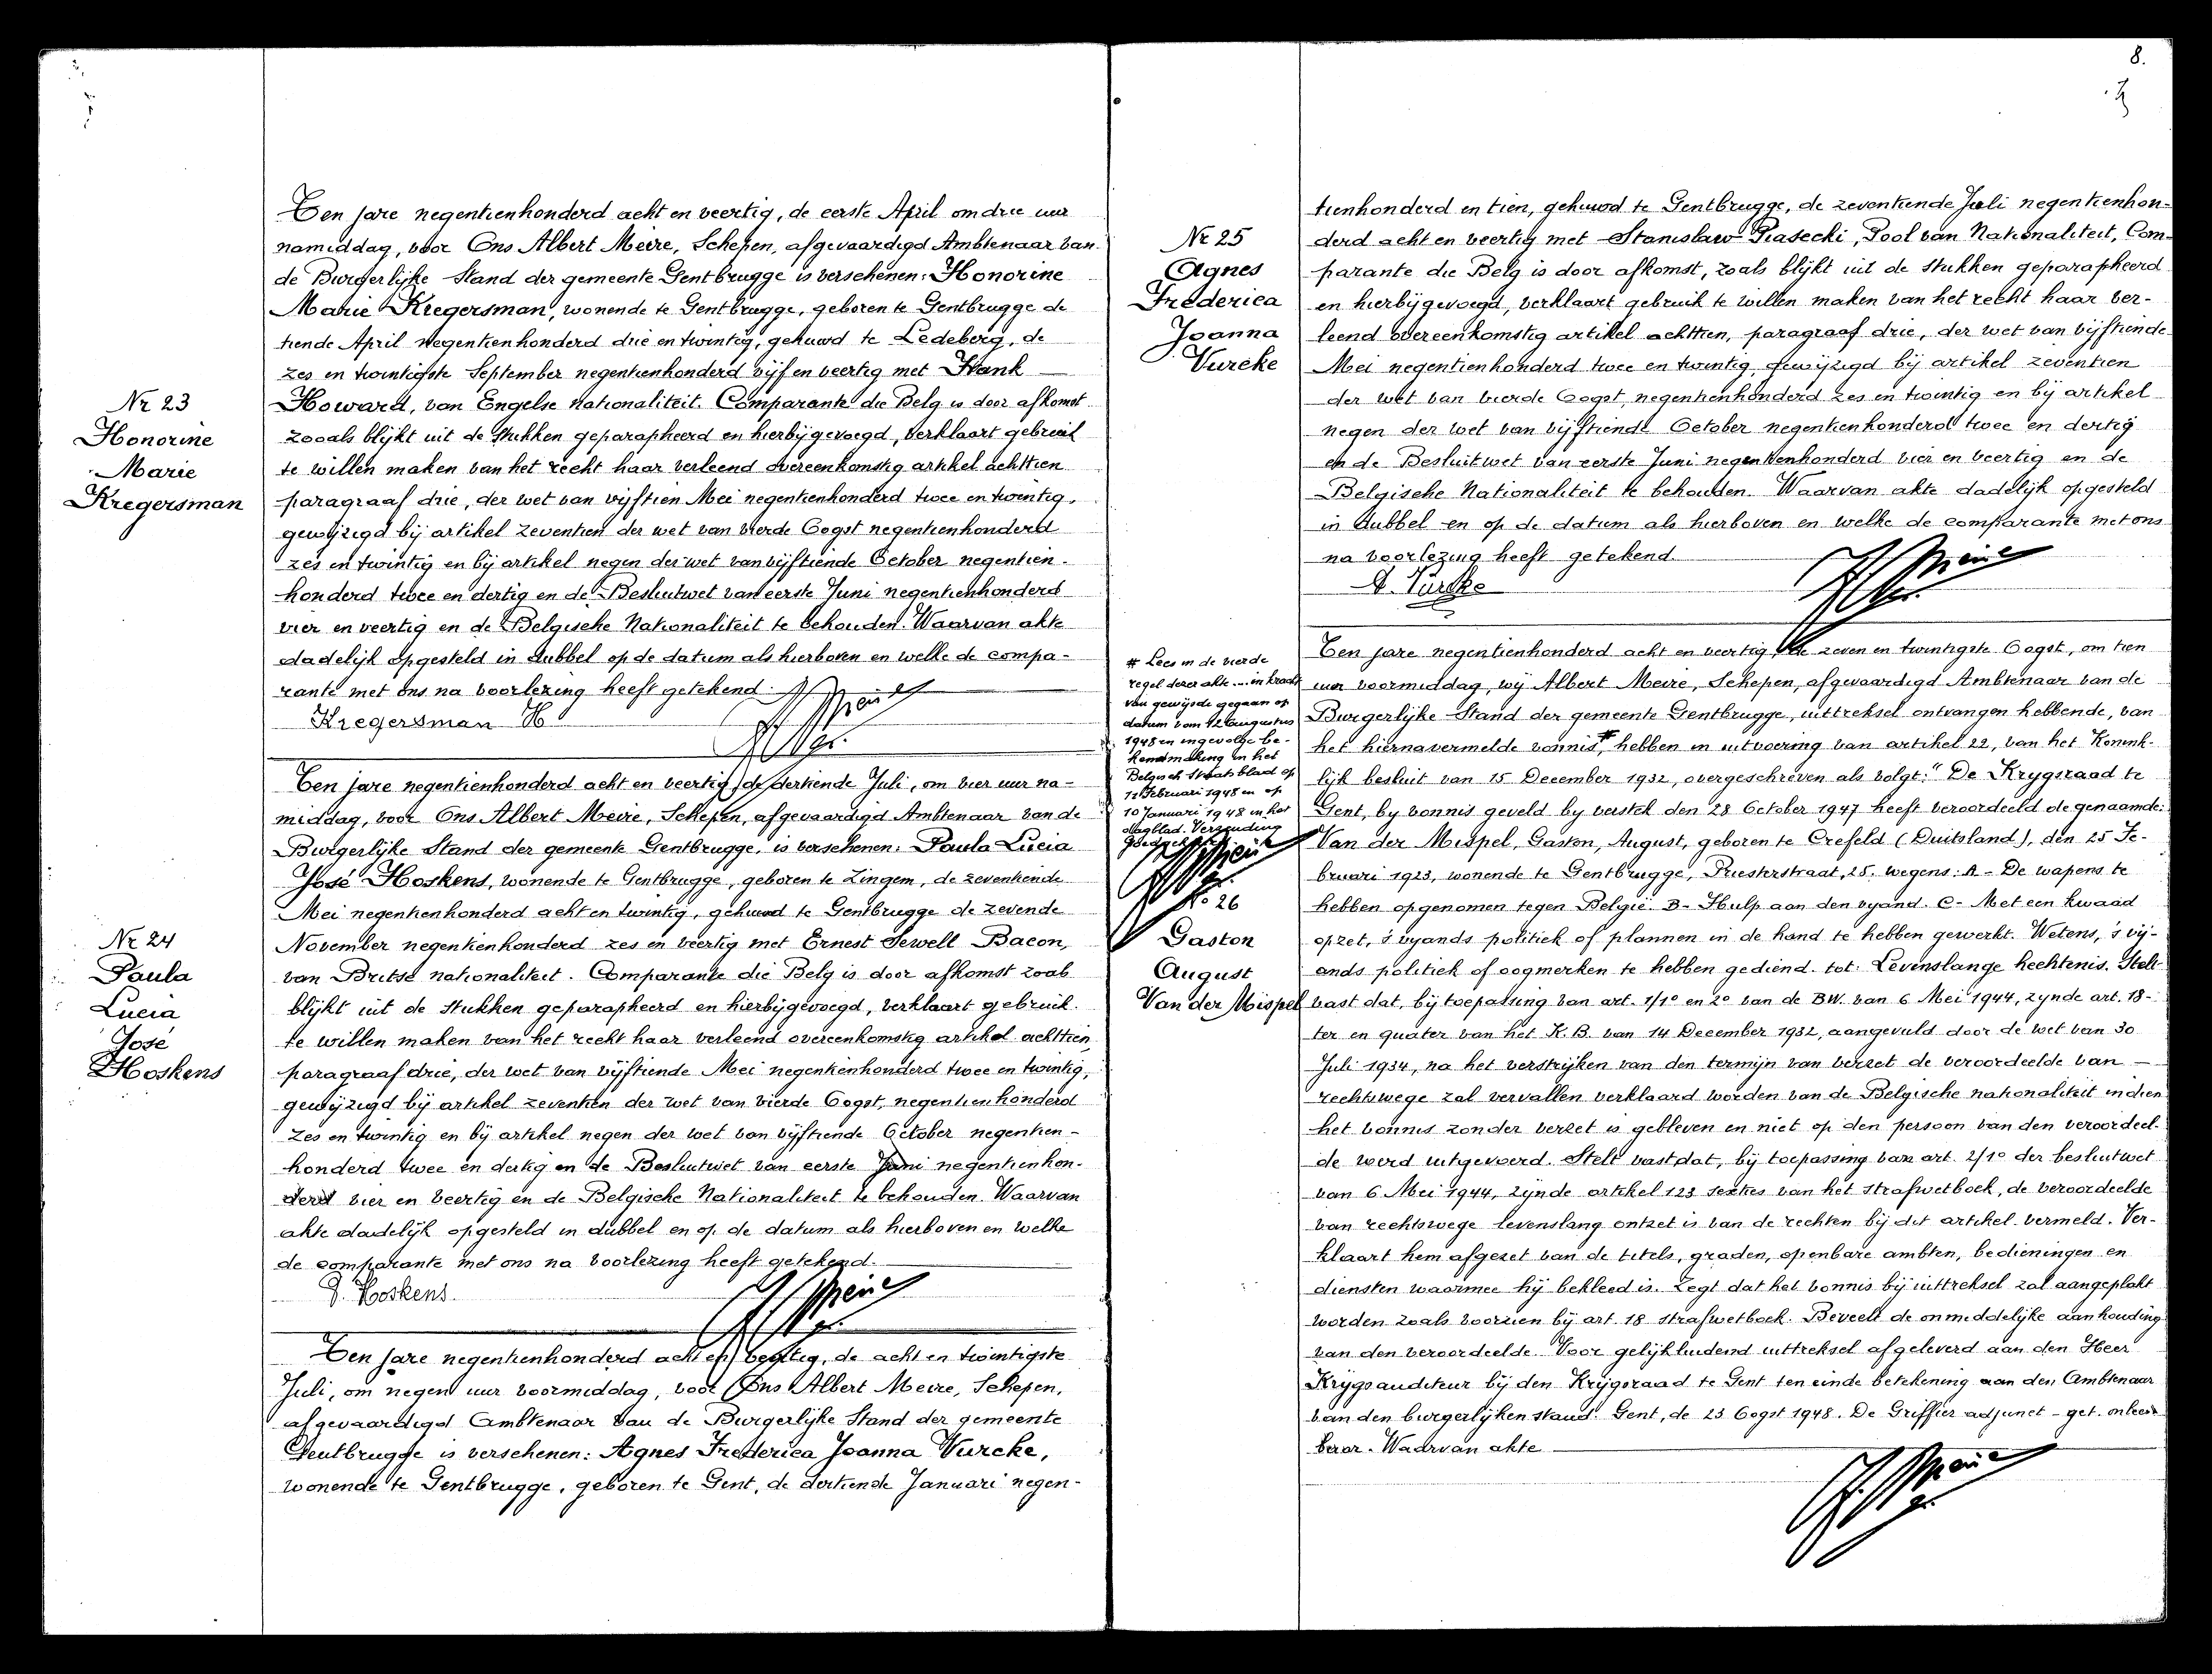 Nr 23
Honorine
Marie
Kregersman
Ten jare negentienhonderd acht en veertig, de eerste April om drie uur
namiddag, voor Ons Albert Meire, Schepen, afgevaardigd Ambtenaar van
de Burgerlijke Stand der gemeente Gentbrugge is verschenen: Honorine
Marie Kregersman, wonende te Gentbrugge, geboren te Gentbrugge de
tiende April negentienhonderd drie en twintig, gehuwd te Ledeberg, de
zes en twintigste September negentienhonderd vijf en veertig met Frank
Howard, van Engelse nationaliteit. Comparante die Belg is door afkomst
zooals blijkt uit de stukken geparapheerd en hierbij gevoegd, verklaart gebruik
te willen maken van het recht haar verleend overeenkomstig artikel achttien
paragraaf drie, der wet van vijftien Mei negentienhonderd twee en twintig,
gewijzigd bij artikel zeventien der wet van vierde Oogst negentienhonderd
zes en twintig en bij artikel negen der wet van vijftiende October negentien-
honderd twee en dertig en de Besluitwet van eerste Juni negentienhonderd
vier en veertig en de Belgische Nationaliteit te behouden. Waarvan akte
dadelijk opgesteld in dubbel op de datum als hierboven en welke de compa-
rante met ons na voorlezing heeft getekend.
Kregersman H
Nr 24
Paula
Lucia
José
Hoskens
Ten jare negentienhonderd acht en veertig, de dertiende Juli, om vier uur na-
middag, voor Ons Albert Meire, Schepen, afgevaardigd Ambtenaar van de
Burgerlijke Stand der gemeente Gentbrugge, is verschenen: Paula Lucia
José Hoskens, wonende te Gentbrugge, geboren te Zingem, de zeventiende
Mei negentienhonderd acht en twintig, gehuwd te Gentbrugge de zevende
November negentienhonderd zes en veertig met Ernest Sewell Bacon,
van Britse nationaliteit. Comparante die Belg is door afkomst zoals
blijkt uit de stukken geparapheerd en hierbijgevoegd, verklaart gebruik
te willen maken van het recht haar verleend overeenkomstig artikel achttien
paragraaf drie, der wet van vijftiende Mei negentienhonderd twee en twintig,
gewijzigd bij artikel zeventien der wet van vierde Oogst, negentienhonderd
zes en twintig en bij artikel negen der wet van vijftiende October negentien-
honderd twee en dertig en de Besluitwet van eerste Juni negentienhon-
derd vier en veertig en de Belgische Nationaliteit te behouden. Waarvan
akte dadelijk opgesteld in dubbel en op de datum als hierboven en welke
de comparante met ons na voorlezing heeft getekend.
J. Hoskens
Ten jare negentienhonderd acht en veertig, de acht en twintigste
Juli, om negen uur voormiddag, voor Ons Albert Meire, Schepen,
afgevaardigd Ambtenaar van de Burgerlijke Stand der gemeente
Gentbrugge is verschenen: Agnes Frederica Joanna Vurcke,
wonende te Gentbrugge, geboren te Gent, de dertiende Januari negen-
8.
Nr 25
Agnes
Frederica
Joanna
Vurcke
tienhonderd en tien, gehuwd te Gentbrugge, de zeventiende Juli negentienhon-
derd acht en veertig met Stanislaw Piasecki, Pool van Nationaliteit, Com-
parante die Belg is door afkomst, zoals blijkt uit de stukken geparapheerd
en hierbijgevoegd, verklaart gebruik te willen maken van het recht haar ver-
leend overeenkomstig artikel achttien, paragraaf drie, der wet van vijftiende
Mei negentienhonderd twee en twintig, gewijzigd bij artikel zeventien
der wet van vierde Oogst, negentienhonderd zes en twintig en bij artikel
negen der wet van vijftiende October negentienhonderd twee en dertig
en de Besluitwet van eerste Juni negentienhonderd vier en veertig en de
Belgische Nationaliteit te behouden. Waarvan akte dadelijk opgesteld
in dubbel en op de datum als hierboven en welke de comparante met ons
na voorlezing heeft getekend
A. Vurcke
# Lees in de vierde
regel dezer akte ... in kracht
van gewijsde gegaan op
datum van 12 Augustus
1948 en ingevolge be-
kendmaking in het
Belgisch Staatsblad op
12 Februari 1948 en op
10 Januari 1948 in het
dagblad. Verzending
Nr 26
Gaston
August
Van der Mispel
Ten jare negentienhonderd acht en veertig, de zeven en twintigste Oogst, om tien
uur voormiddag, wij Albert Meire, Schepen, afgevaardigd Ambtenaar van de
Burgerlijke Stand der gemeente Gentbrugge, uittreksel ontvangen hebbende, van
het hiernavermelde vonnis,# hebben in uitvoering van artikel 22, van het Konink-
lijk besluit van 15 December 1932, overgeschreven als volgt: "De Krijgsraad te
Gent, by vonnis geveld by verstek den 28 October 1947 heeft veroordeeld de genaamde:
Van der Mispel, Gaston, August, geboren te Crefeld (Duitsland), den 25 Fe-
bruari 1923, wonende te Gentbrugge, Priesterstraat, 25. wegens: A - De wapens te
hebben opgenomen tegen België. B - Hulp aan den vyand. C - Met een kwaad
opzet, 's vyands politiek of plannen in de hand te hebben gewerkt. Wetens, 's vij-
ands politiek of oogmerken te hebben gediend. tot: Levenslange hechtenis. Stelt
vast dat, bij toepassing van art. 1/1° en 2° van de BW. van 6 Mei 1944, zynde art. 18-
ter en quater van het K.B. van 14 December 1932, aangevuld door de wet van 30
Juli 1934, na het verstrijken van den termijn van verzet de veroordeelde van
rechtswege zal vervallen verklaard worden van de Belgische nationaliteit indien
het vonnis zonder verzet is gebleven en niet op den persoon van den veroordeel-
de werd uitgevoerd. Stelt vast dat, bij toepassing van art. 2/1° der besluitwet
van 6 Mei 1944, zynde artikel 123 sexties van het strafwetboek, de veroordeelde
van rechtswege levenslang ontzet is van de rechten bij dit artikel vermeld. Ver-
klaart hem afgezet van de titels, graden, openbare ambten, bedieningen en
diensten waarmee hij bekleed is. Zegt dat het vonnis bij uittreksel zal aangeplakt
worden zoals voorzien bij art. 18 strafwetboek. Beveelt de onmiddelijke aanhouding
van den veroordeelde. Voor gelijkluidend uittreksel afgeleverd aan den Heer
Krijgsauditeur bij den Krijgsraad te Gent ten einde betekening aan den Ambtenaar
van den burgerlijken stand. Gent, de 23 Oogst 1948. De Griffier adjunct - get. onlees-
baar. Waarvan akte